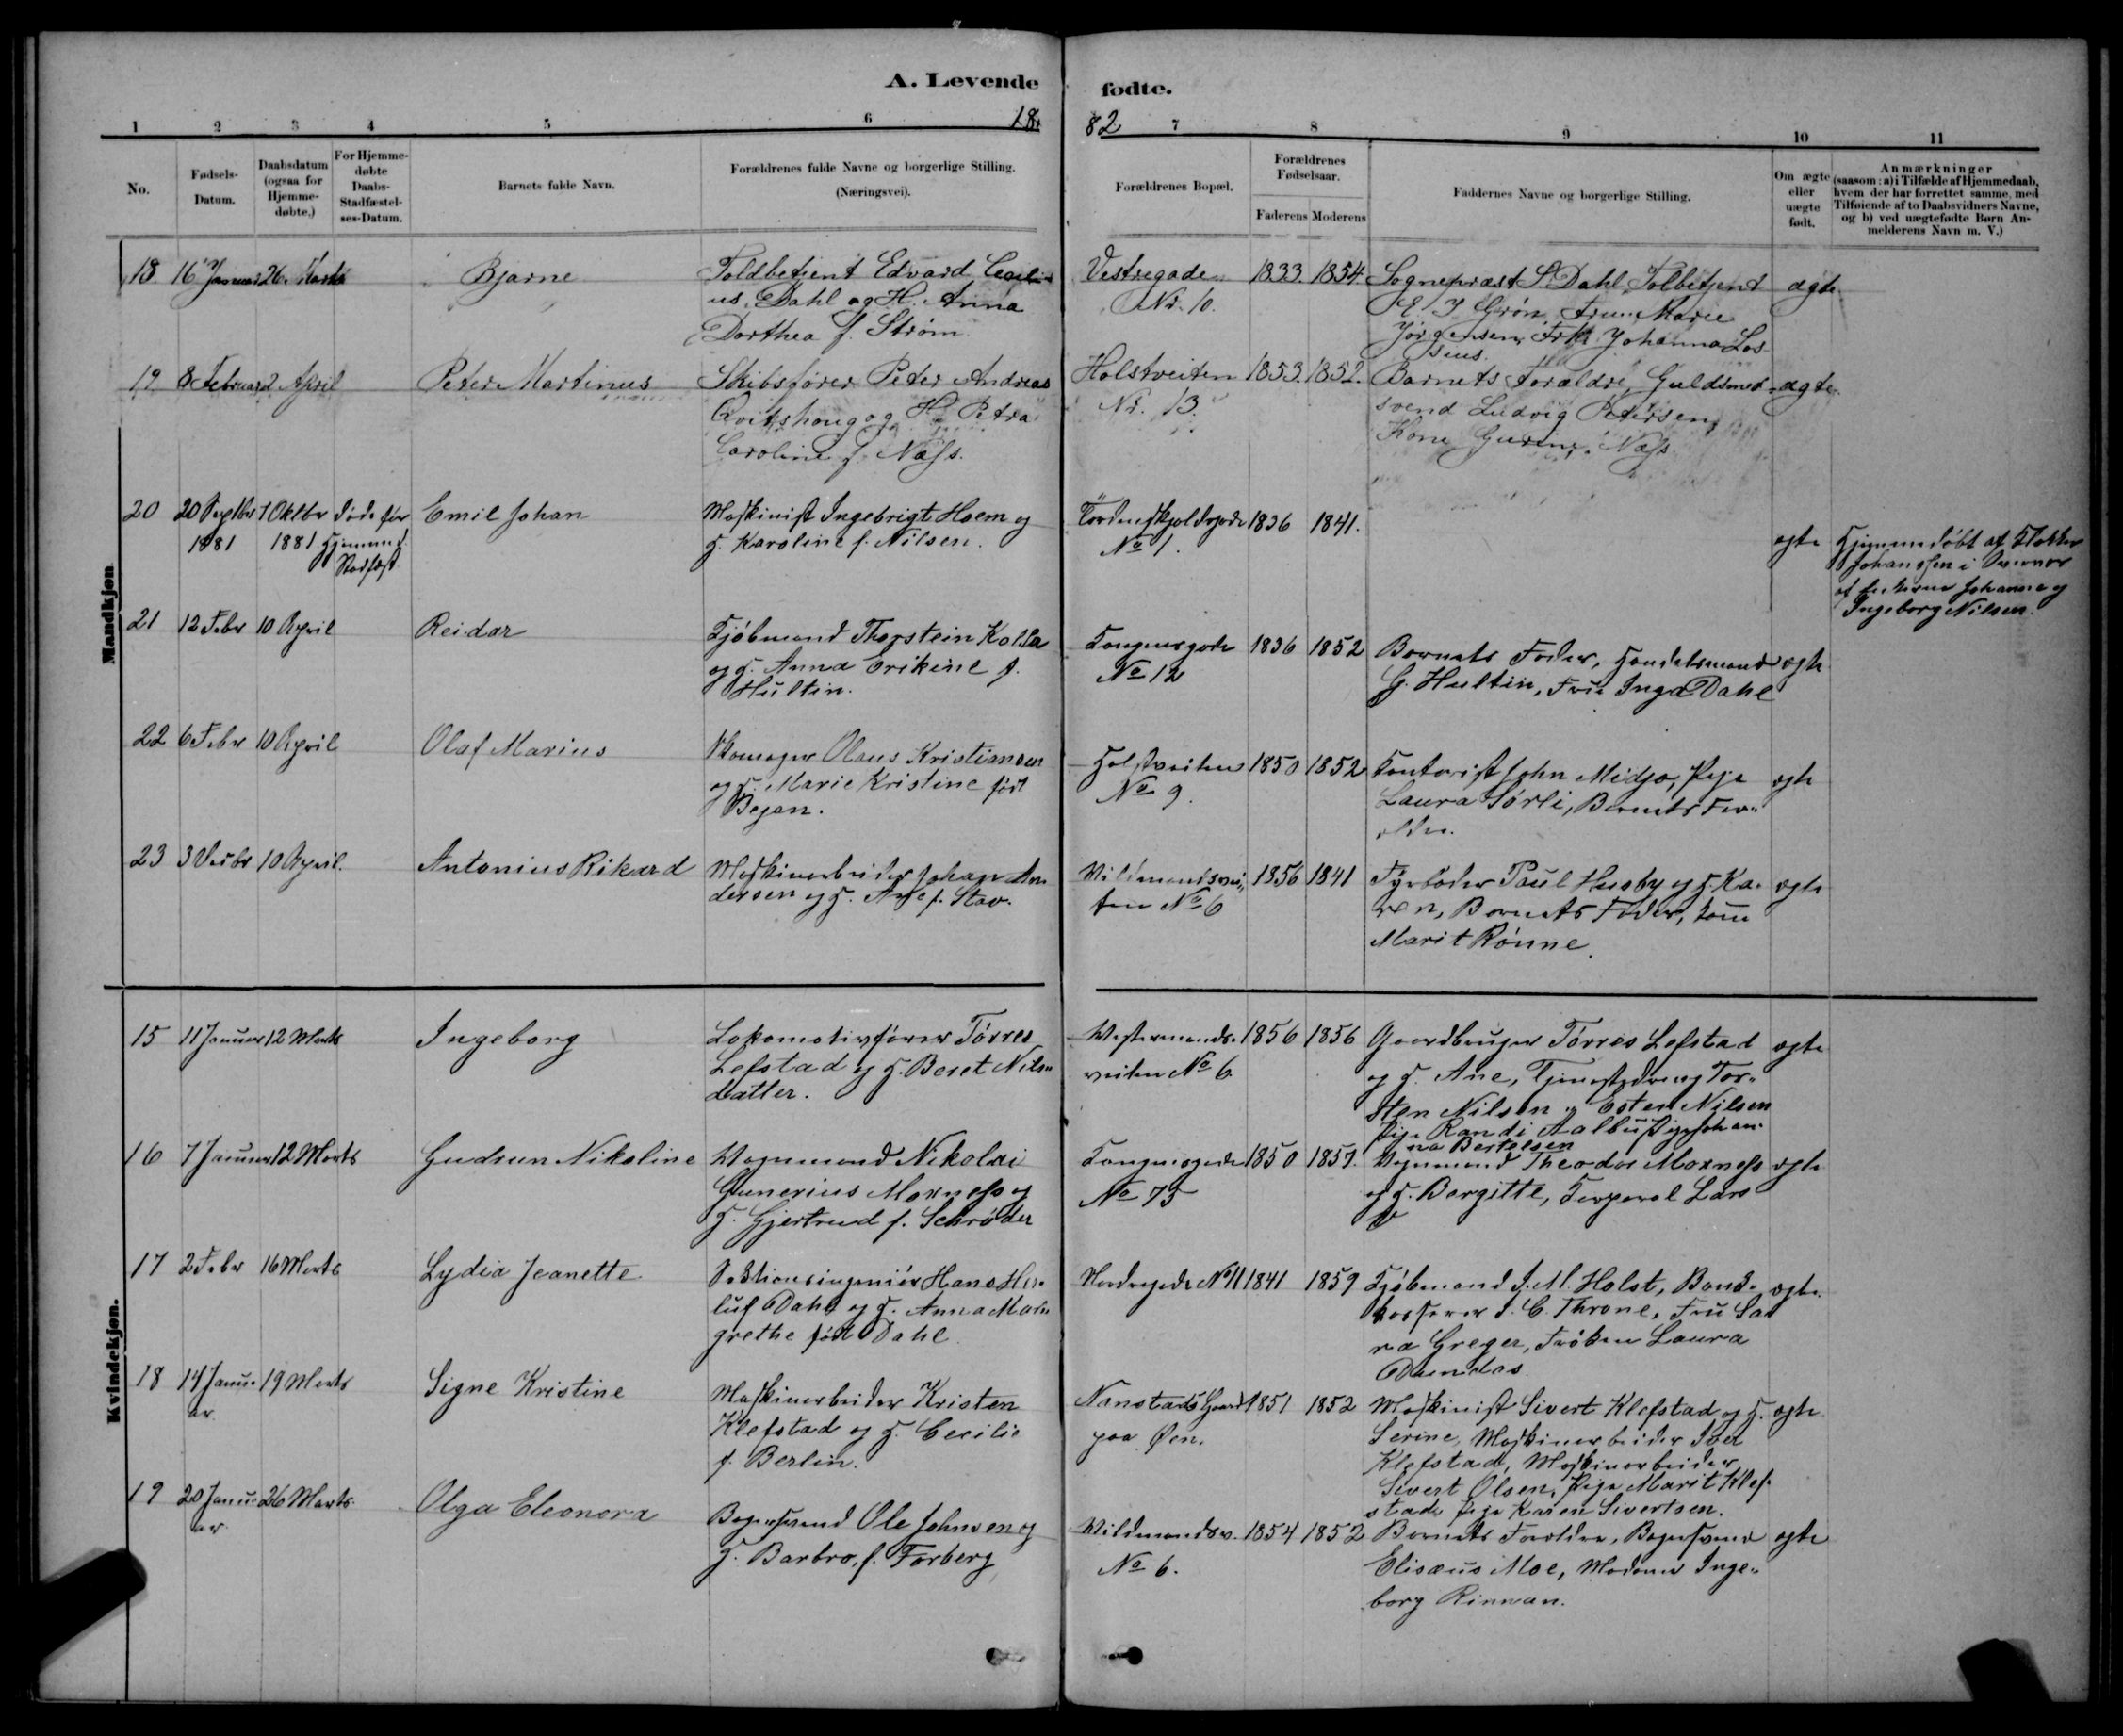 A. Levende fødte.
1882
1 2 3 4 5 6 7 8 9 10 11
No.
Fødsels-Datum.
Daabsdatum (ogsaa for Hjemme-døbte.)
For Hjemme-døbte Daabs-Stadfæstel-ses-Datum.
Barnets fulde Navn.
Forældrenes fulde Navne og borgerlige Stilling.
(Næringsvei).
Forældrenes Bopæl.
Forældrenes Fødselsaar.
Faderens Moderens
Faddernes Navne og borgerlige Stilling.
Om ægte eller uægte født.
Anmærkninger
(saasom: a) i Tilfælde af Hjemmedaab,
hvem der har forrettet samme, med
Tilføiende af to Daabsvidners Navne,
og b) ved uægtefødte Børn An-
melderens Navn m. V.)
Mandkjøn
18 16 Januar 26 Marts Bjarne
Toldbetjent Edvard Cecili-
us Dahl og H. Anna
Dorthea f. Strøm
Vestregade
Nr. 10.
1833. 1854.
Sognepræst S. Dahl, Tolbetjent
E. J Grøn, Frue Marie
Jørgensen, Frk Johanna Los
sius.
ægte
19 8 Februar 2 April Peter Martinus
Skibsfører Peter Andreas
Qvitshoug og H. Petra
Caroline f. Næss.
Holstveiten
Nr. 13.
1853. 1852.
Barnets Forældre, Guldsmed
svend Ludvig Petersen,
Kone Gurine Næss
ægte
20 20 Septbr 1 Oktbr døde før Emil Johan
1881 1881 Hjemmed.
Stadfæst
Maskinist Ingebrigt Hoem og
H. Karoline f. Nilsen.
Tordenskjoldsgade
No 1.
1836 1841.
ægte
Hjemmedøbt af Klokker
Johanssen i Nærvær
af Johanna og
Ingeborg Nilsen.
21 12 Febr 10 April Reidar
Kjøbmand Thorstein Kolla
og H. Anna Erikine f.
Hultin.
Kongensgade
No 12
1836 1852
Barnets Fader, Handelsmand
G. Hultin, Frue Inga Dahl
ægte
22 6 Febr 10 April Olaf Marius
Skomager Olaus Kristiansen
og H. Marie Kristine født
Bejan.
Holstveiten
No 9.
1850 1852
Kontorist John Midjo, Pige
Laura Sørli, Barnets For-
ældre.
ægte
23 3 Decbr 10 April. Antonius Rikard
Maskinarbeider Johan An
dersen og H. Ane f. Stav.
Vildmandsvei-
ten No 6
1856 1841
Fyrbøder Paul Husby og H. Ka-
ren, Barnets Fader, Kone
Marit Rønne.
ægte
Kvindekjøn.
15 11 Januar 12 Marts Ingeborg
Lokomotivfører Tørres
Lefstad og H. Beret Nils
datter.
Westermands-
veiten No 6
1856 1856
Gaardbruger Tørres Lefstad
og H. Ane, Tjenestedreng Tor-
sten Nilsen og Esten Nilsen
Pige Randi Aalbu, Pige Johan-
na Bertelsen
ægte
16 7 Januar 12 Marts Gudrun Nikoline
Vognmand Nikolai
Gunerius Moxness og
H. Gjertrud f. Schrøder
Kongensgade
No 75
1850 1857.
Vognmand Theodor Moxness
og H. Bergitte, Korporal Lars
ægte
17 2 Febr 16 Marts Lydia Jeanette
Sektionsingeniør Hans Her-
luf Dahl og H. Anna Mar-
grethe født Dahl
Nordregade No 11
1841 1859
Kjøbmand J. M. Holst, Bank-
kasserer J. C. Throne, Frue Sa
ra Greger, Frøken Laura
Dundas.
ægte.
18 14 Janu- 19 Marts Signe Kristine
ar
Maskinarbeider Kristen
Klefstad og H. Cecilie
f. Berlin.
Nanstads Gaard
paa Øen.
1851 1852
Maskinist Sivert Klefstad og H.
Serine, Maskinarbeider Iver
Klefstad, Maskinarbeider
Sivert Olsen, Pige Marit Klef-
stad, Pige Karen Sivertsen.
ægte
19 20 Janu- 26 Marts. Olga Eleonora
ar
Bagersvend Ole Johnsen og
H. Barbro, f. Forberg
Vildmandsv.
No 6.
1854 1852
Barnets Forældre, Bagersvend
Elisæus Moe, Madame Inge-
borg Rinnan.
ægte